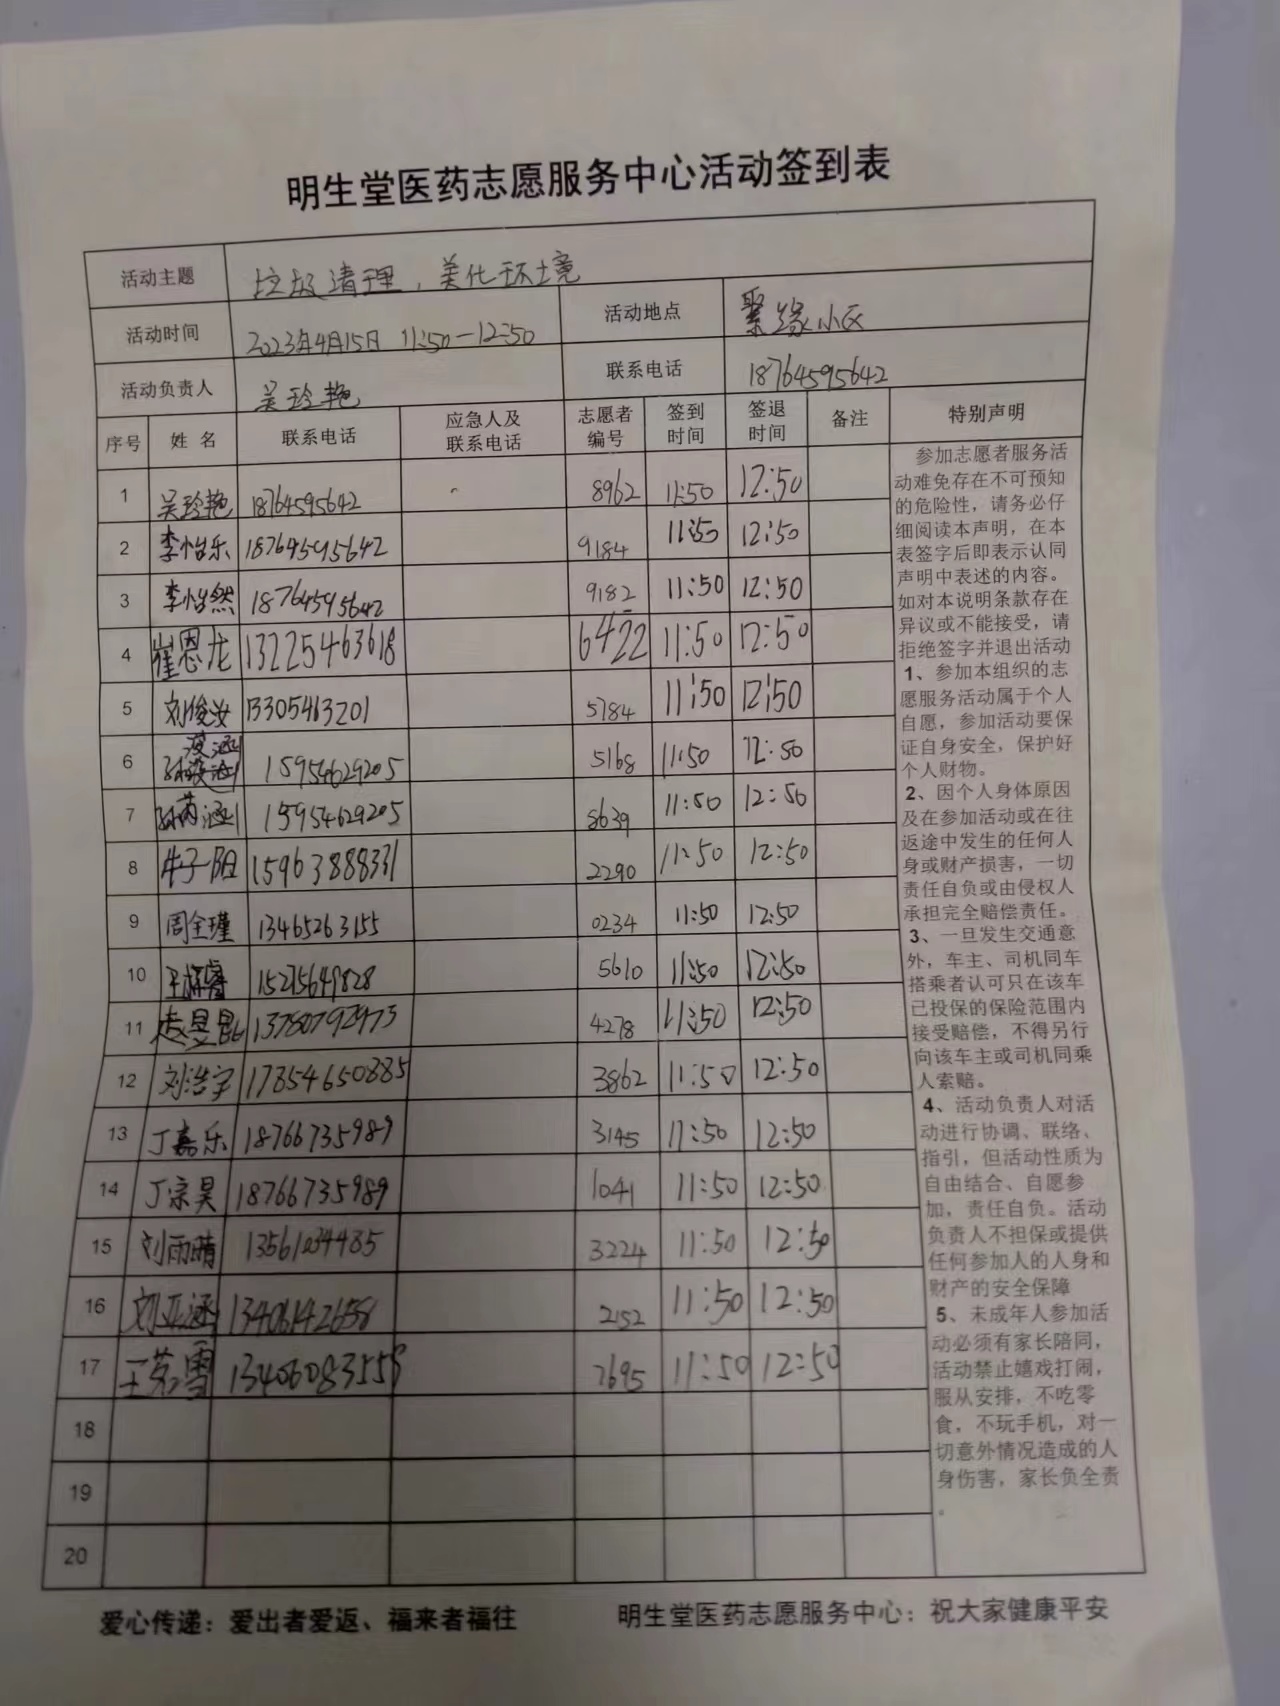 明生堂医药志愿服务中心活动签到表
活动主题 垃圾清理，美化环境
活动时间 2023年4月15日 11:50—12:50 活动地点 聚缘小区
活动负责人 吴玲艳 联系电话 18764595642
序号 姓名 联系电话 应急人及联系电话 志愿者编号 签到时间 签退时间 备注 特别声明
1 吴玲艳 18764595642 8962 11:50 12:50
2 李怡乐 18764595642 9184 11:50 12:50
3 李怡然 18764595642 9182 11:50 12:50
4 崔恩龙 13225463618 6422 11:50 12:50
5 刘俊汝 13305463201 5784 11:50 12:50
6 15954629205 5168 11:50 12:50
7 孙芮涵 15954629205 8639 11:50 12:50
8 牛子阳 15963888331 2290 11:50 12:50
9 周全瑾 13465263155 0234 11:50 12:50
10 15215649828 5610 11:50 12:50
11 13780792973 4278 11:50 12:50
12 刘浩宇 17854650885 3862 11:50 12:50
13 丁嘉乐 18766735989 3145 11:50 12:50
14 丁宗昊 18766735989 1041 11:50 12:50
15 刘雨晴 13561034485 3224 11:50 12:50
16 刘亚涵 13406142658 2152 11:50 12:50
17 王若雪 13406083558 7695 11:50 12:50
18
19
20
参加志愿者服务活
动难免存在不可预知
的危险性，请务必仔
细阅读本声明，在本
表签字后即表示认同
声明中表述的内容。
如对本说明条款存在
异议或不能接受，请
拒绝签字并退出活动
1、参加本组织的志
愿服务活动属于个人
自愿，参加活动要保
证自身安全，保护好
个人财物。
2、因个人身体原因
及在参加活动或在往
返途中发生的任何人
身或财产损害，一切
责任自负或由侵权人
承担完全赔偿责任。
3、一旦发生交通意
外，车主、司机同车
搭乘者认可只在该车
已投保的保险范围内
接受赔偿，不得另行
向该车主或司机同乘
人索赔。
4、活动负责人对活
动进行协调、联络、
指引，但活动性质为
自由结合、自愿参
加，责任自负。活动
负责人不担保或提供
任何参加人的人身和
财产的安全保障
5、未成年人参加活
动必须有家长陪同，
活动禁止嬉戏打闹，
服从安排，不吃零
食，不玩手机，对一
切意外情况造成的人
身伤害，家长负全责
。
爱心传递：爱出者爱返、福来者福往 明生堂医药志愿服务中心：祝大家健康平安